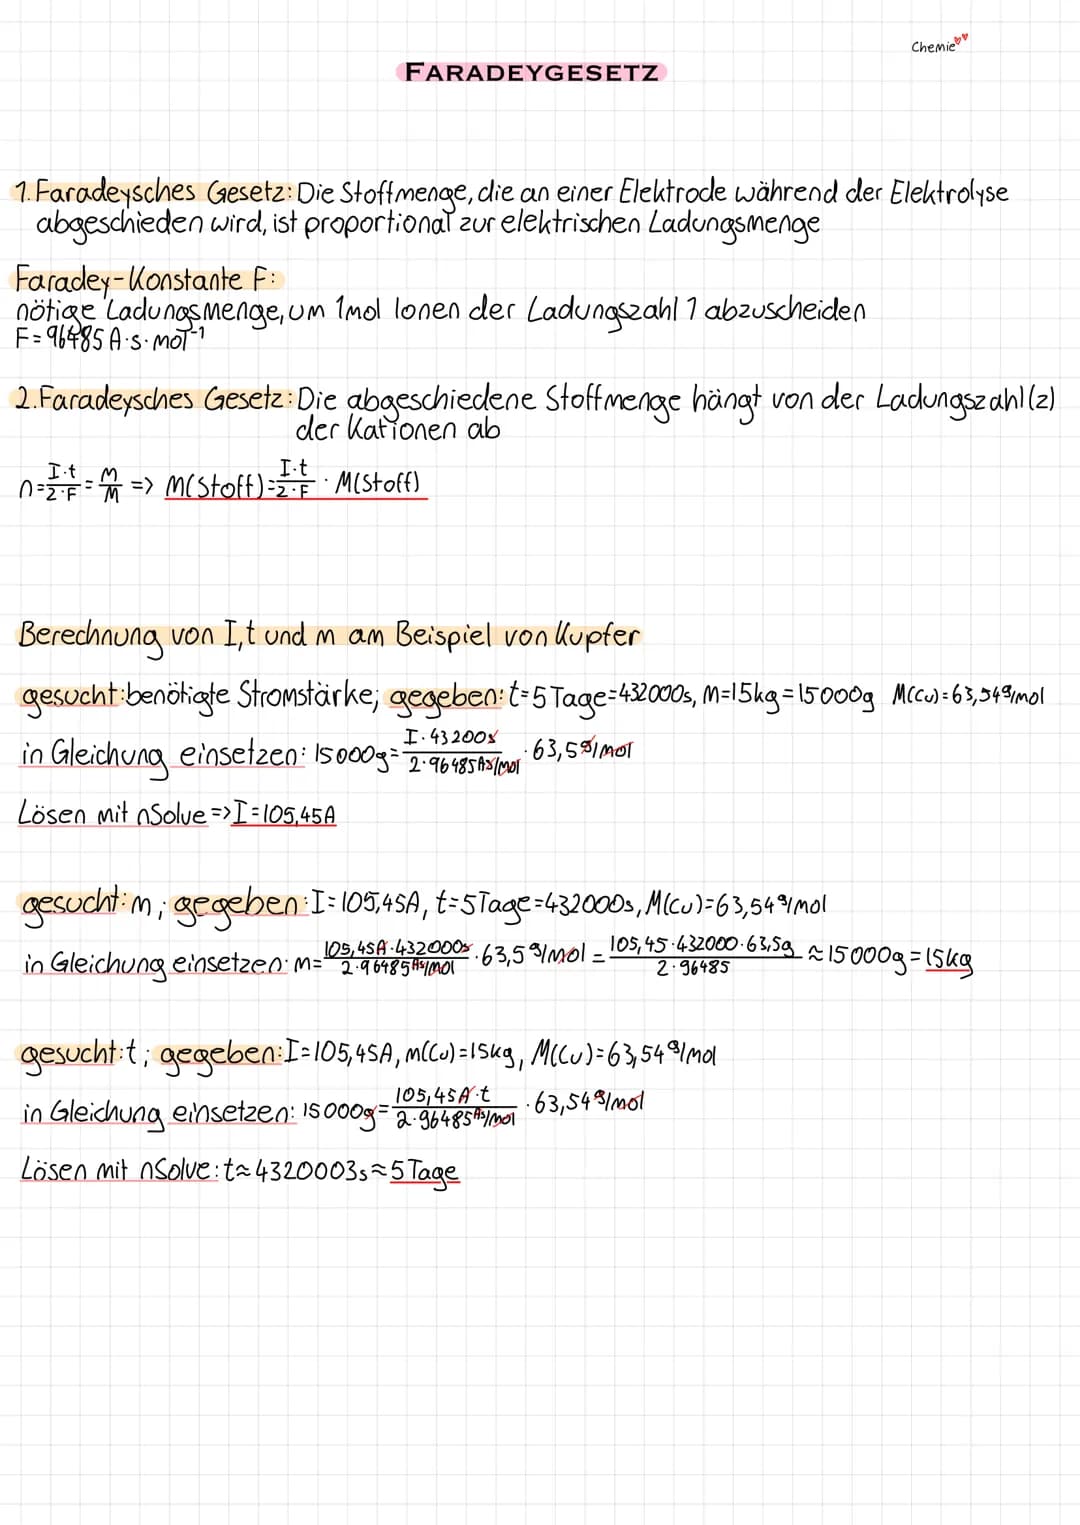 Chemie
FARADEYGESETZ
1. Faradeysches Gesetz: Die Stoffmenge, die an einer Elektrode während der Elektrolyse
abgeschieden wird, ist proportional zur elektrischen Ladungsmenge
Faradey-Konstante F:
nötige Ladungsmenge, um 1mol Ionen der Ladungszahl 1 abzuscheiden
F=96485 A·s·mol⁻¹
2. Faradeysches Gesetz: Die abgeschiedene Stoffmenge hängt von der Ladungszahl (z)
der Kationen ab
n=I·t/2·F=m/M => m(Stoff)=I·t/2·F · M(Stoff)
Berechnung von I, t und m am Beispiel von Kupfer
gesucht: benötigte Stromstärke; gegeben: t=5 Tage=432000s, m=15kg=15000g M(Cu)=63,54g/mol
in Gleichung einsetzen: 15000g=I·43200s/2·96485As/mol ·63,5g/mol
Lösen mit nSolve => I=105,45A
gesucht: m; gegeben: I=105,45A, t=5Tage=432000s, M(Cu)=63,54g/mol
in Gleichung einsetzen: m=105,45A·432000s/2·96485As/mol ·63,5g/mol = 105,45·432000·63,5g/2·96485 ≈15000g=15kg
gesucht: t; gegeben: I=105,45A, m(Cu)=15kg, M(Cu)=63,54g/mol
in Gleichung einsetzen: 15000g=105,45A·t/2·96485As/mol ·63,54g/mol
Lösen mit nSolve: t≈4320003s≈5 Tage